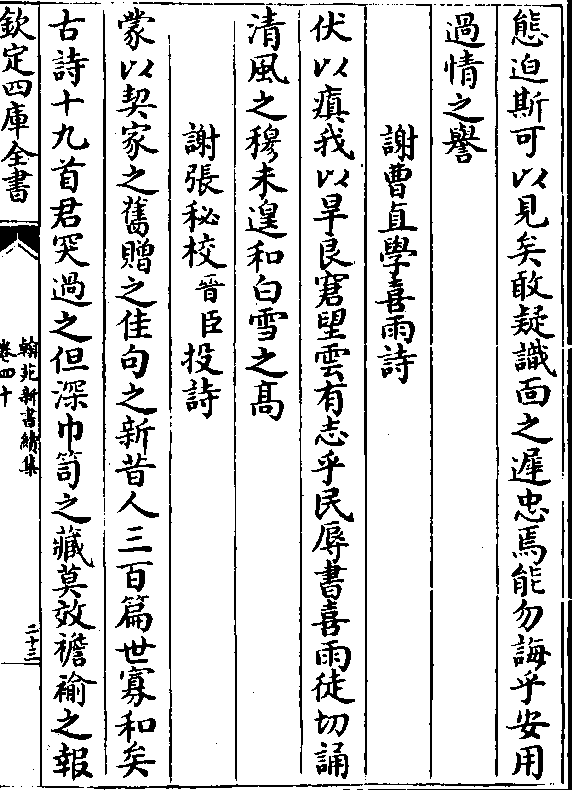 態迫斯可以見矣敢疑識面之遲忠焉能勿誨乎安用
過情之譽
謝曹直學喜雨詩
伏以瘨我以旱良窘望雲有志乎民辱書喜雨徒切誦
清風之穆未遑和白雪之高
謝張秘校晉臣投詩
蒙以契家之舊贈之佳句之新昔人三百篇世寡和矣
古詩十九首君突過之但深巾笥之藏莫效襜褕之報
欽定四庫全書
翰苑新書續集
卷四十
二十三